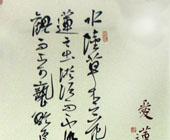 愛蓮
水陸草木之花
蓮之出淤泥而不
觀而不可褻翫